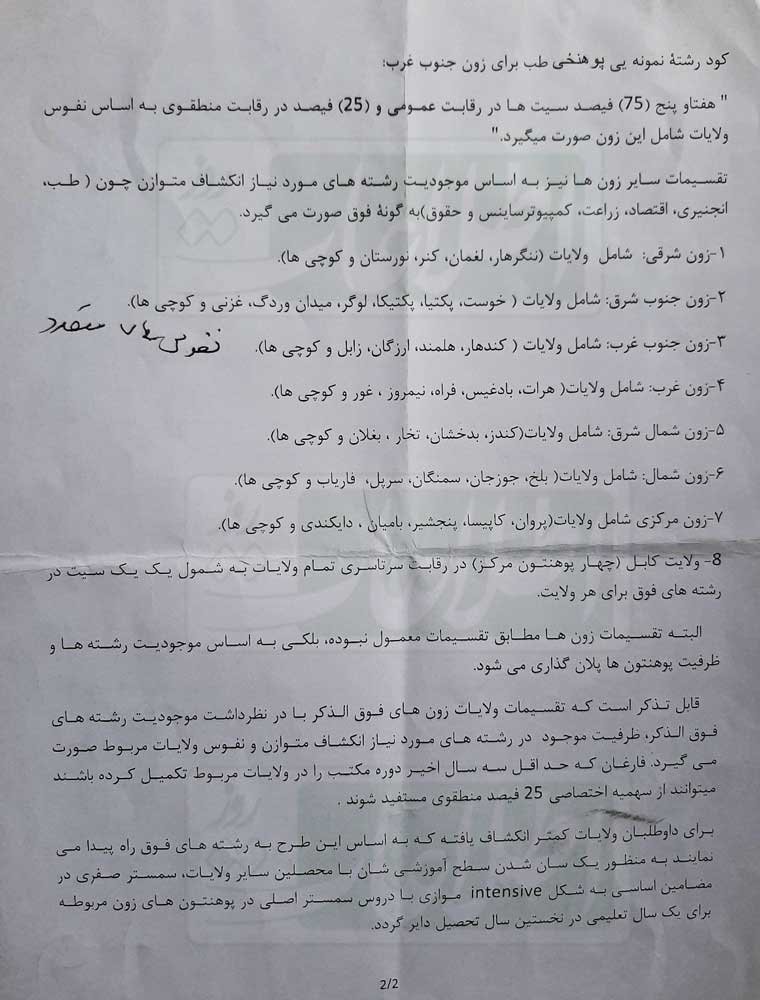 کود رشتهٔ نمونه یی پوهنځی طب برای زون جنوب غرب:
" هفتاو پنج (75) فیصد سیت ها در رقابت عمومی و (25) فیصد در رقابت منطقوی به اساس نفوس
ولایات شامل این زون صورت میگیرد."
تقسیمات سایر زون ها نیز به اساس موجودیت رشته های مورد نیاز انکشاف متوازن چون ( طب،
انجنیری، اقتصاد، زراعت، کمپیوترساینس و حقوق)به گونهٔ فوق صورت می گیرد.
۱-زون شرقی: شامل ولایات (ننگرهار، لغمان، کنر، نورستان و کوچی ها).
۲-زون جنوب شرق: شامل ولایات ( خوست، پکتیا، پکتیکا، لوگر، میدان وردگ، غزنی و کوچی ها).
۳-زون جنوب غرب: شامل ولایات ( کندهار، هلمند، ارزگان، زابل و کوچی ها). نفوس
۴-زون غرب: شامل ولایات( هرات، بادغیس، فراه، نیمروز ، غور و کوچی ها).
۵-زون شمال شرق: شامل ولایات(کندز، بدخشان، تخار ، بغلان و کوچی ها).
۶-زون شمال: شامل ولایات( بلخ، جوزجان، سمنگان، سرپل، فاریاب و کوچی ها).
۷-زون مرکزی شامل ولایات(پروان، کاپیسا، پنجشیر، بامیان ، دایکندی و کوچی ها).
8- ولایت کابل (چهار پوهنتون مرکز) در رقابت سرتاسری تمام ولایات به شمول یک یک سیت در
رشته های فوق برای هر ولایت.
البته تقسیمات زون ها مطابق تقسیمات معمول نبوده، بلکی به اساس موجودیت رشته ها و
ظرفیت پوهنتون ها پلان گذاری می شود.
قابل تذکر است که تقسیمات ولایات زون های فوق الذکر با در نظرداشت موجودیت رشته های
فوق الذکر، ظرفیت موجود در رشته های مورد نیاز انکشاف متوازن و نفوس ولایات مربوط صورت
می گیرد. فارغان که حد اقل سه سال اخیر دوره مکتب را در ولایات مربوط تکمیل کرده باشند
میتوانند از سهمیه اختصاصی 25 فیصد منطقوی مستفید شوند .
برای داوطلبان ولایات کمتر انکشاف یافته که به اساس این طرح به رشته های فوق راه پیدا می
نمایند به منظور یک سان شدن سطح آموزشی شان با محصلین سایر ولایات، سمستر صفری در
مضامین اساسی به شکل intensive موازی با دروس سمستر اصلی در پوهنتون های زون مربوطه
برای یک سال تعلیمی در نخستین سال تحصیل دایر گردد.
2/2